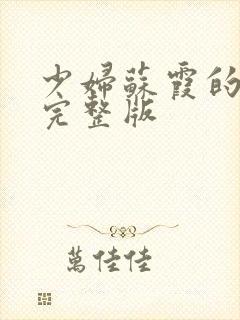 少婦蘇霞的
完整版
萬佳佳